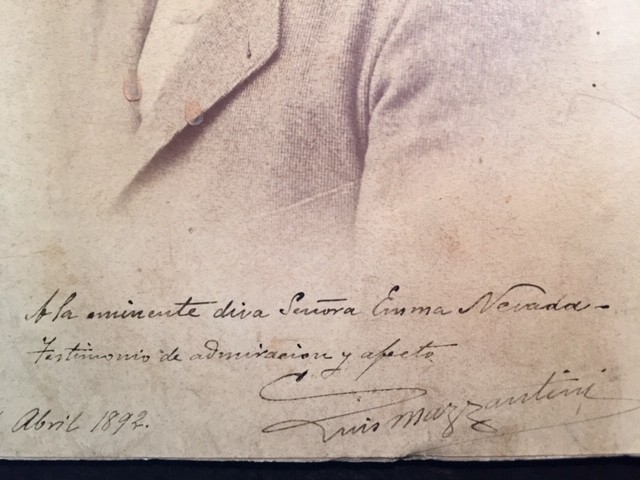 A la eminente diva Señora Emma Nevada -
Testimonio de admiracion y afecto
Luis Mazzantini
Abril 1892.